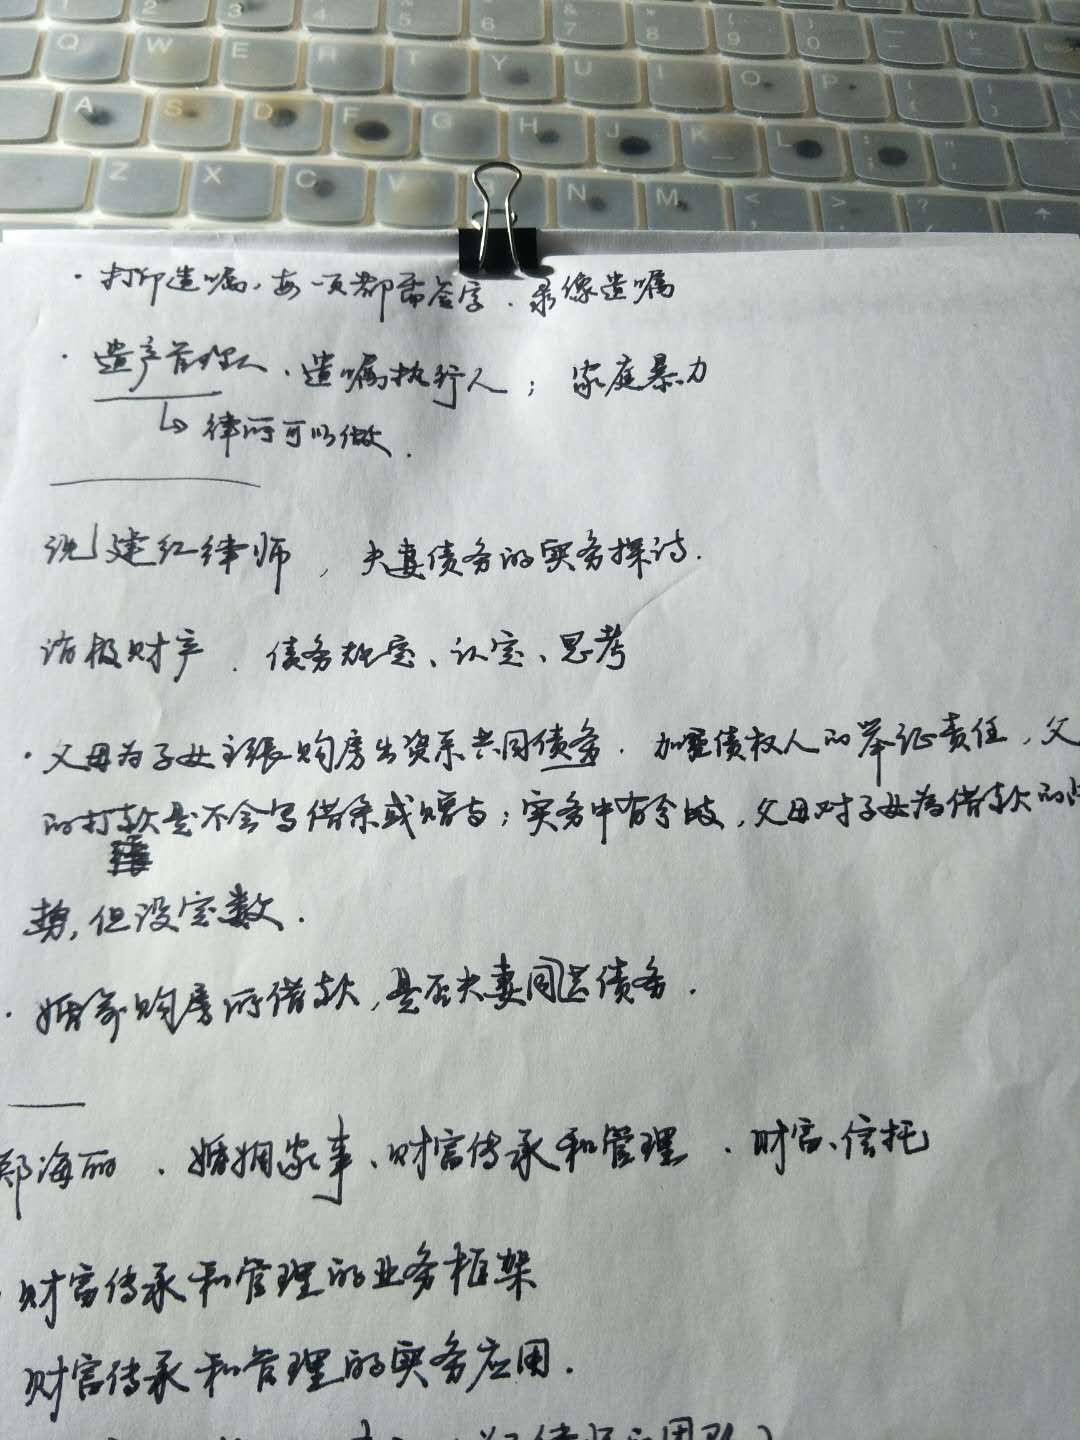 5 6 7 8 9 0
Q W E R T Y U I O P
A S D F G H J K L
Z X C V B N M
· 打印遗嘱、每一页都需签字. 录像遗嘱
· 遗产管理人、遗嘱执行人; 家庭暴力
↳ 律所可以做.
建红律师, 夫妻债务的实务探讨.
消极财产. 债务规定、认定、思考
· 父母为子女主张购房出资系共同债务. 加重债权人的举证责任, 父
的打款是不会写借条或赠与; 实务中有分歧, 父母对子女为借款的
势, 但没定数.
· 婚前购房所借款, 是否夫妻同共债务.
郑海丽. 婚姻家事、财富传承和管理. 财富、信托
财富传承和管理的业务框架
财富传承和管理的实务应用.